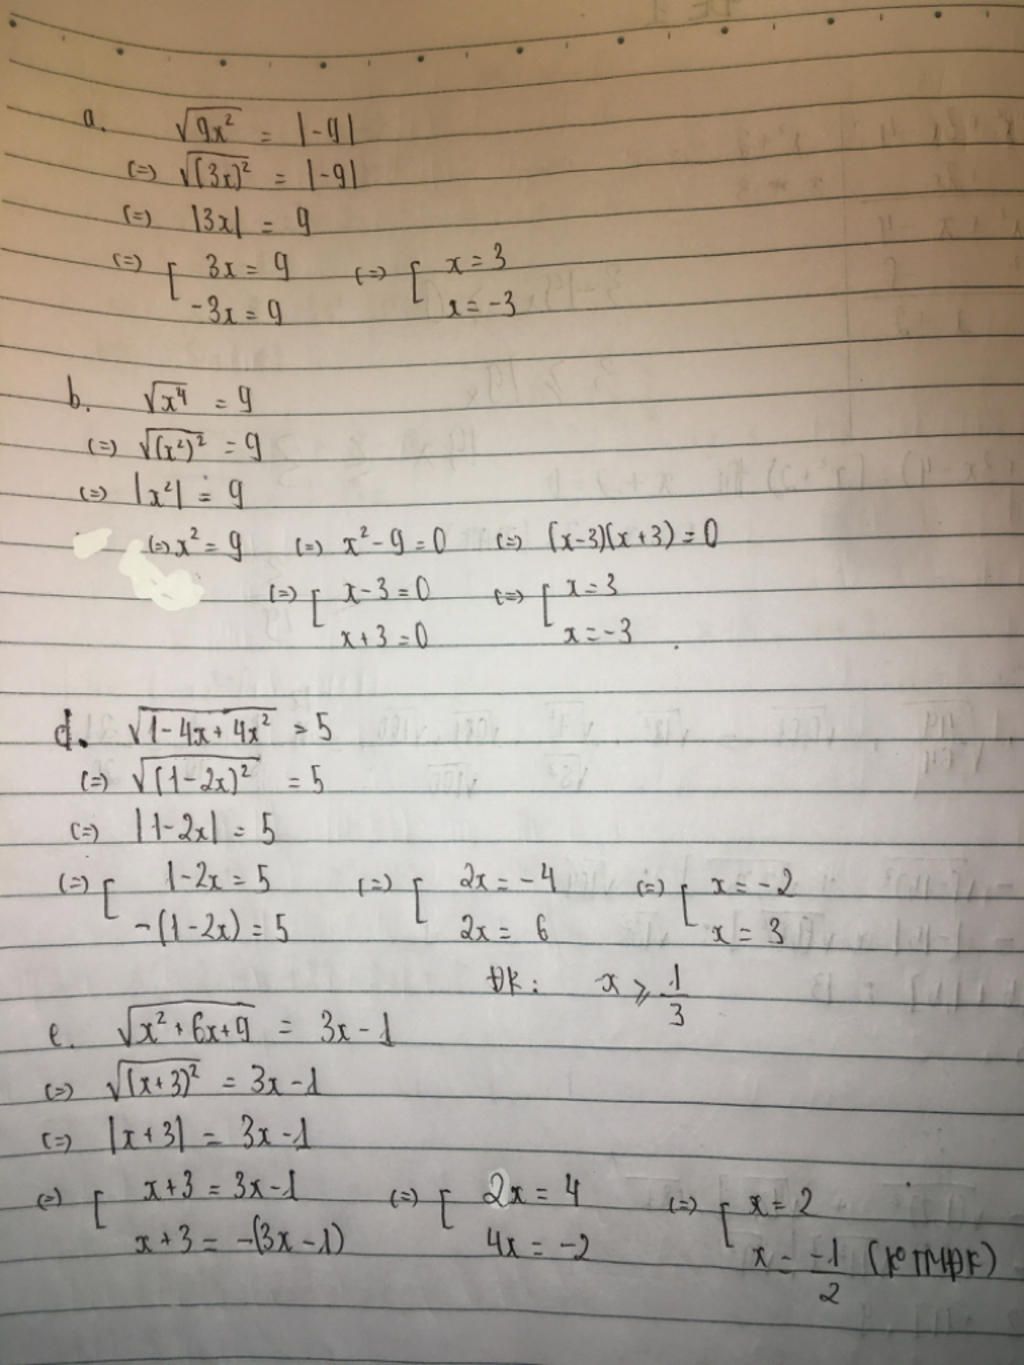 a. √9x² = |-9|
(=) √(3x)² = |-9|
(=) |3x| = 9
(=) [ 3x = 9 (=) [ x = 3
-3x = 9 x = -3
b. √x⁴ = 9
(=) √(x²)² = 9
(=) |x²| = 9
(=) x² = 9 (=) x² - 9 = 0 (=) (x-3)(x+3) = 0
(=) [ x - 3 = 0 (=) [ x = 3
x + 3 = 0 x = -3
d. √1 - 4x + 4x² = 5
(=) √(1-2x)² = 5
(=) |1-2x| = 5
(=) [ 1-2x = 5 (=) [ 2x = -4 (=) [ x = -2
-(1-2x) = 5 2x = 6 x = 3
ĐK: x ⩾ 1/3
e. √x² + 6x + 9 = 3x - 1
(=) √(x+3)² = 3x - 1
(=) |x+3| = 3x - 1
(=) [ x+3 = 3x - 1 (=) [ 2x = 4 (=) [ x = 2
x+3 = -(3x-1) 4x = -2 x = -1/2 (KTMĐK)